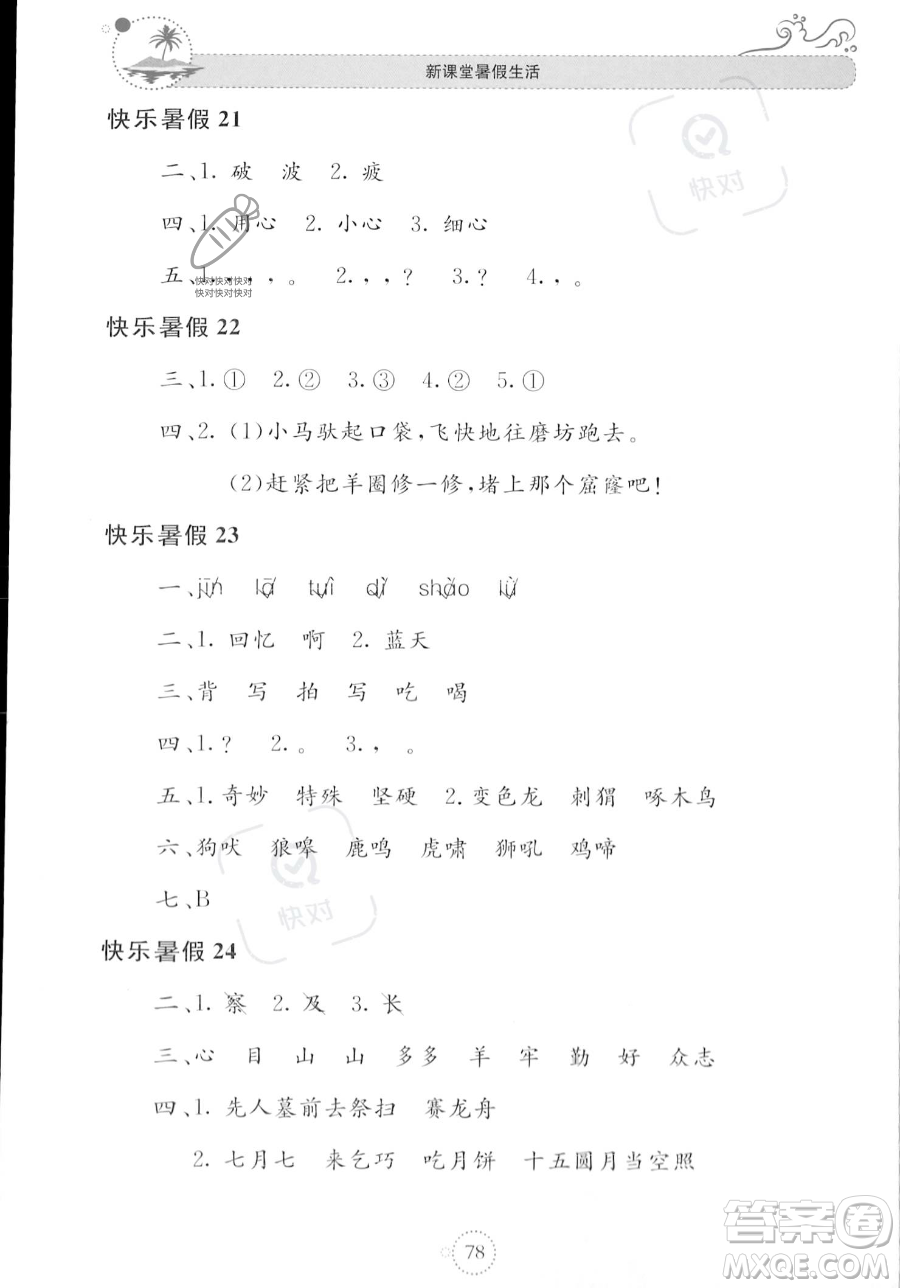 新课堂暑假生活
快乐暑假 21
二、1. 破 波 2. 疲
四、1. 用心 2. 小心 3. 细心
五、1. , , , 。 2. , , ? 3. ? 4. , 。
快对快对快对
快对快对快对
快对
快乐暑假 22
三、1. ① 2. ② 3. ③ 4. ② 5. ①
四、2. (1)小马驮起口袋,飞快地往磨坊跑去。
(2)赶紧把羊圈修一修,堵上那个窟窿吧!
快乐暑假 23
一、jīn lā tuì dì shǎo lǜ
二、1. 回忆 啊 2. 蓝天
三、背 写 拍 写 吃 喝
四、1. ? 2. 。 3. , 。
五、1. 奇妙 特殊 坚硬 2. 变色龙 刺猬 啄木鸟
六、狗吠 狼嗥 鹿鸣 虎啸 狮吼 鸡啼
七、B
快对
快乐暑假 24
二、1. 察 2. 及 3. 长
三、心 目 山 山 多多 羊 牢 勤 好 众志
四、1. 先人墓前去祭扫 赛龙舟
2. 七月七 来乞巧 吃月饼 十五圆月当空照
78
答案卷
MXQE.COM